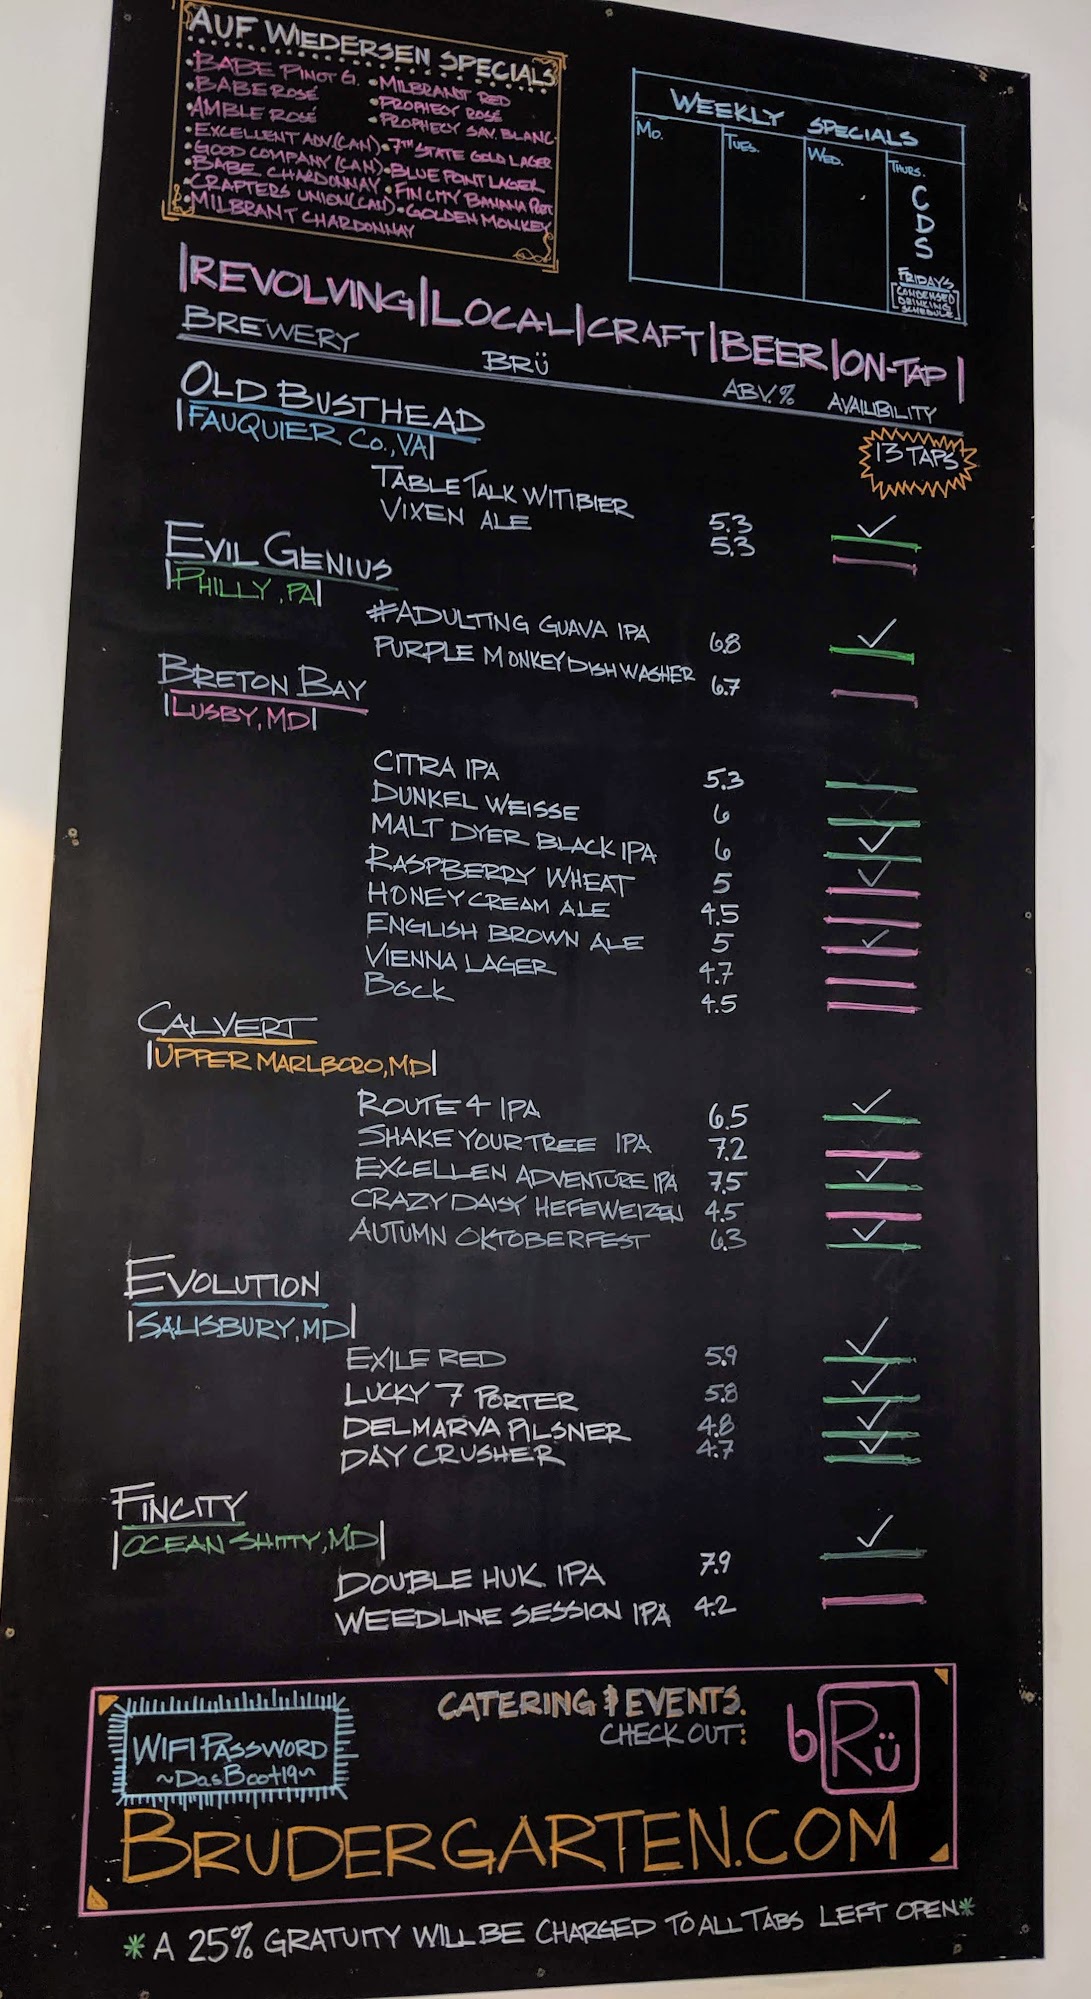 AUF WIEDERSEN SPECIALS
• BABE PINOT G. • MILBRANDT RED
• BABE ROSÉ • PROPHECY ROSÉ
• AMBLE ROSÉ • PROPHECY SAV. BLANC
• EXCELLENT ADV (CAN) • 7TH STATE GOLD LAGER
• GOOD COMPANY (CAN) • BLUE POINT LAGER
• BABE CHARDONNAY • FIN CITY BANANA
• CRAFTERS UNION (CAN) • GOLDEN MONKEY
• MILBRANT CHARDONNAY
WEEKLY SPECIALS
MO. TUES. WED. THURS.
C
D
S
FRIDAYS
[CONDENSED
DRINKING
SCHEDULE]
|REVOLVING|LOCAL|CRAFT|BEER|ON-TAP|
BREWERY BRÜ ABV.% AVAILIBILITY
13 TAPS
OLD BUSTHEAD
|FAUQUIER CO., VA|
TABLE TALK WITIBIER 5.3 ✓
VIXEN ALE 5.3
EVIL GENIUS
|PHILLY, PA|
#ADULTING GUAVA IPA 6.8 ✓
PURPLE MONKEY DISHWASHER 6.7
BRETON BAY
|LUSBY, MD|
CITRA IPA 5.3
DUNKEL WEISSE 6
MALT DYER BLACK IPA 6 ✓
RASPBERRY WHEAT 5 ✓
HONEY CREAM ALE 4.5
ENGLISH BROWN ALE 5 ✓
VIENNA LAGER 4.7
BOCK 4.5
CALVERT
|UPPER MARLBORO, MD|
ROUTE 4 IPA 6.5 ✓
SHAKE YOUR TREE IPA 7.2
EXCELLEN ADVENTURE IPA 7.5 ✓
CRAZY DAISY HEFEWEIZEN 4.5
AUTUMN OKTOBERFEST 6.3 ✓
EVOLUTION
|SALISBURY, MD|
EXILE RED 5.9 ✓
LUCKY 7 PORTER 5.8 ✓
DELMARVA PILSNER 4.8 ✓
DAY CRUSHER 4.7 ✓
FINCITY
|OCEAN SHITTY, MD|
DOUBLE HUK IPA 7.9 ✓
WEEDLINE SESSION IPA 4.2
WIFI PASSWORD
~DasBoot19~
CATERING & EVENTS.
CHECK OUT:
bRü
BRUDERGARTEN.COM
* A 25% GRATUITY WILL BE CHARGED TO ALL TABS LEFT OPEN *